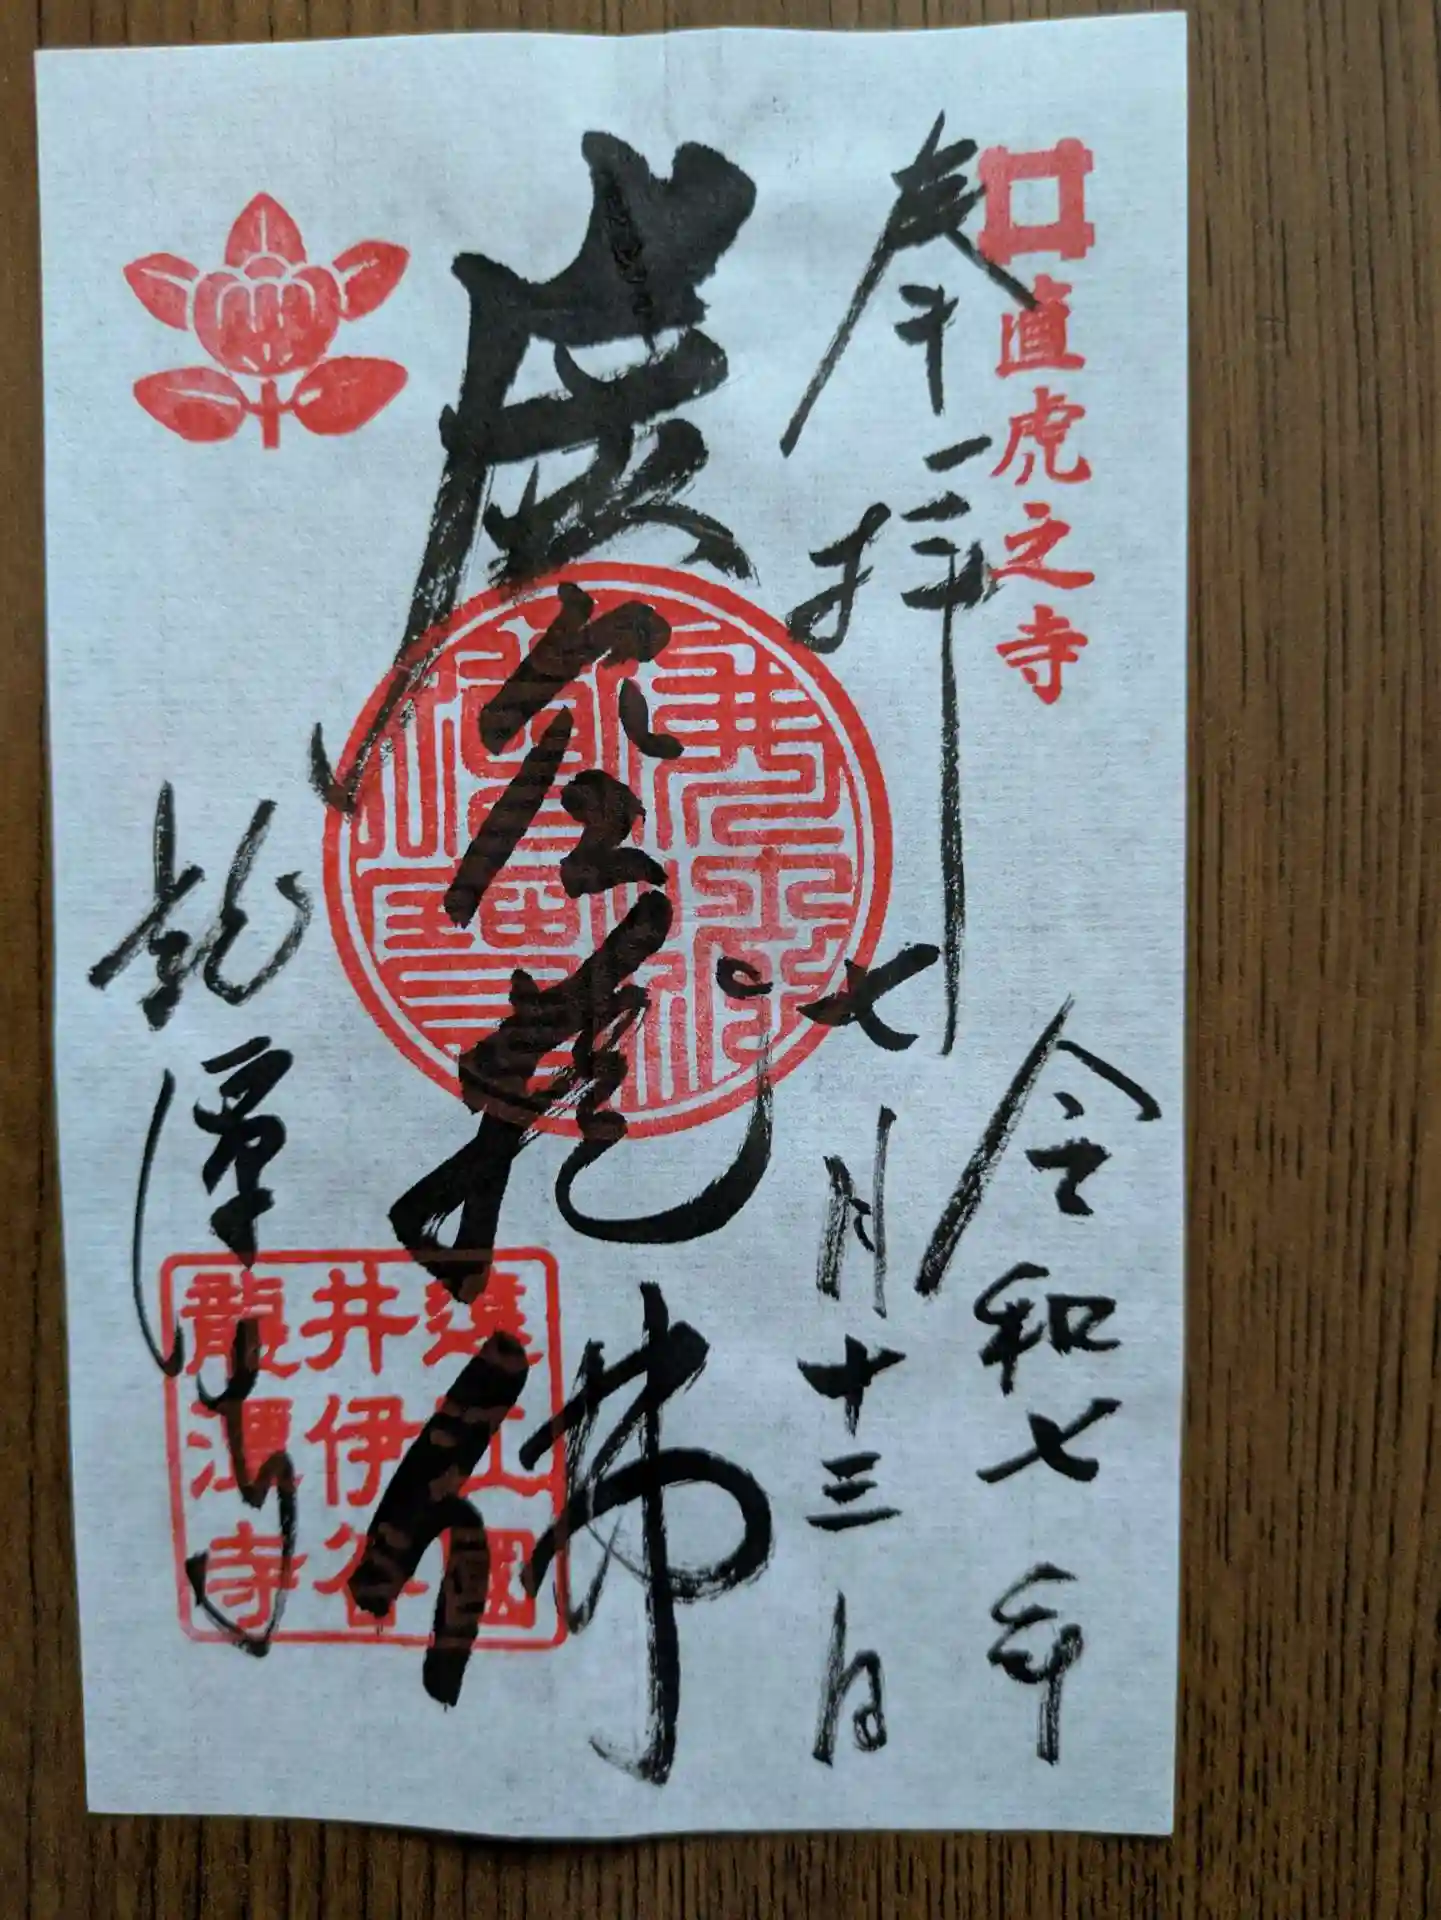 直虎之寺
奉拝
令和七年
七月十三日
虚空蔵佛
龍潭寺
遠江國
井伊谷
龍潭寺
佛法僧寶